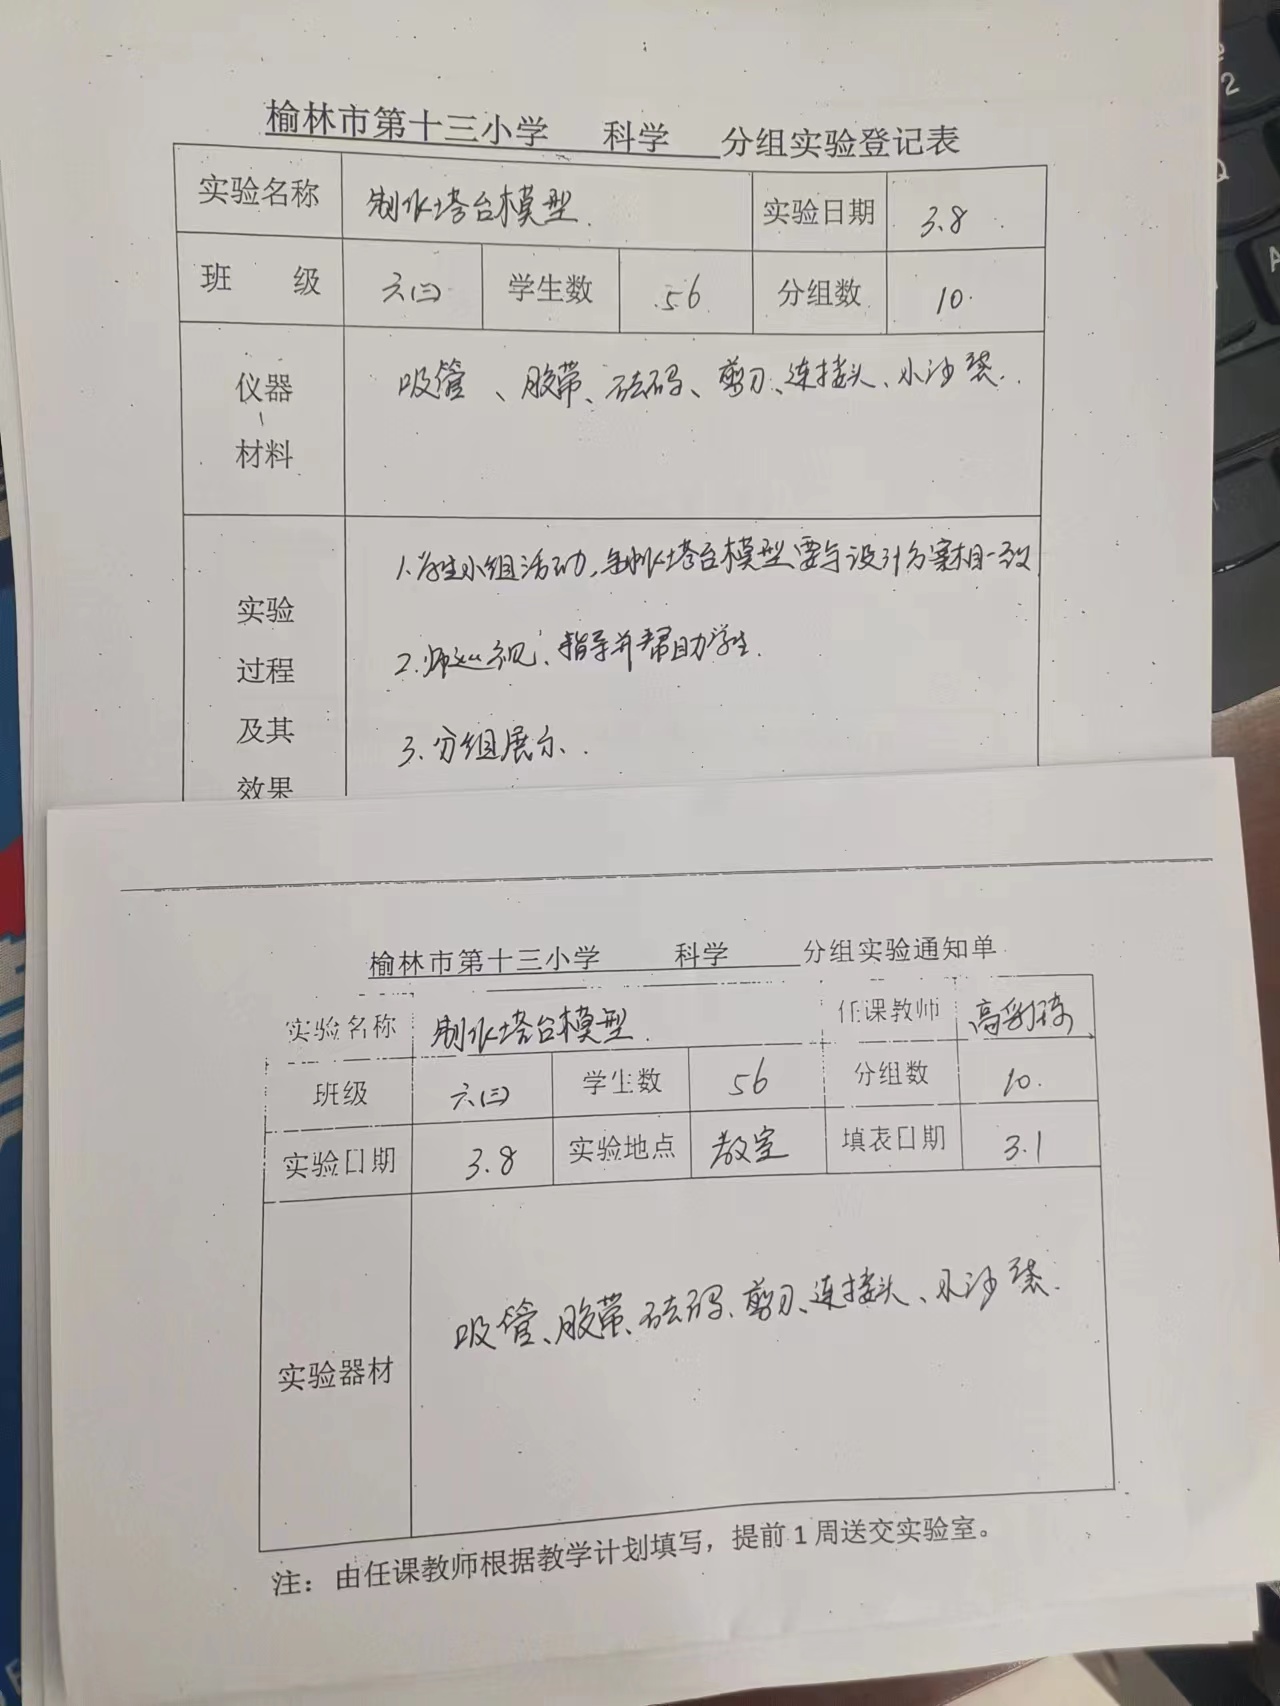 榆林市第十三小学 科学 分组实验登记表
实验名称 制作塔台模型. 实验日期 3.8.
班 级 六(三) 学生数 56 分组数 10.
仪器、材料 吸管、胶带、砝码、剪刀、连接头、小沙袋.
实验过程及其效果
1.学生小组活动,制作塔台模型要与设计方案相一致
2.师巡视、指导并帮助学生.
3.分组展示.
榆林市第十三小学 科学 分组实验通知单
实验名称 制作塔台模型. 任课教师 高
班级 六(三) 学生数 56 分组数 10.
实验日期 3.8 实验地点 教室 填表日期 3.1
实验器材 吸管、胶带、砝码、剪刀、连接头、小沙袋.
注：由任课教师根据教学计划填写，提前1周送交实验室。